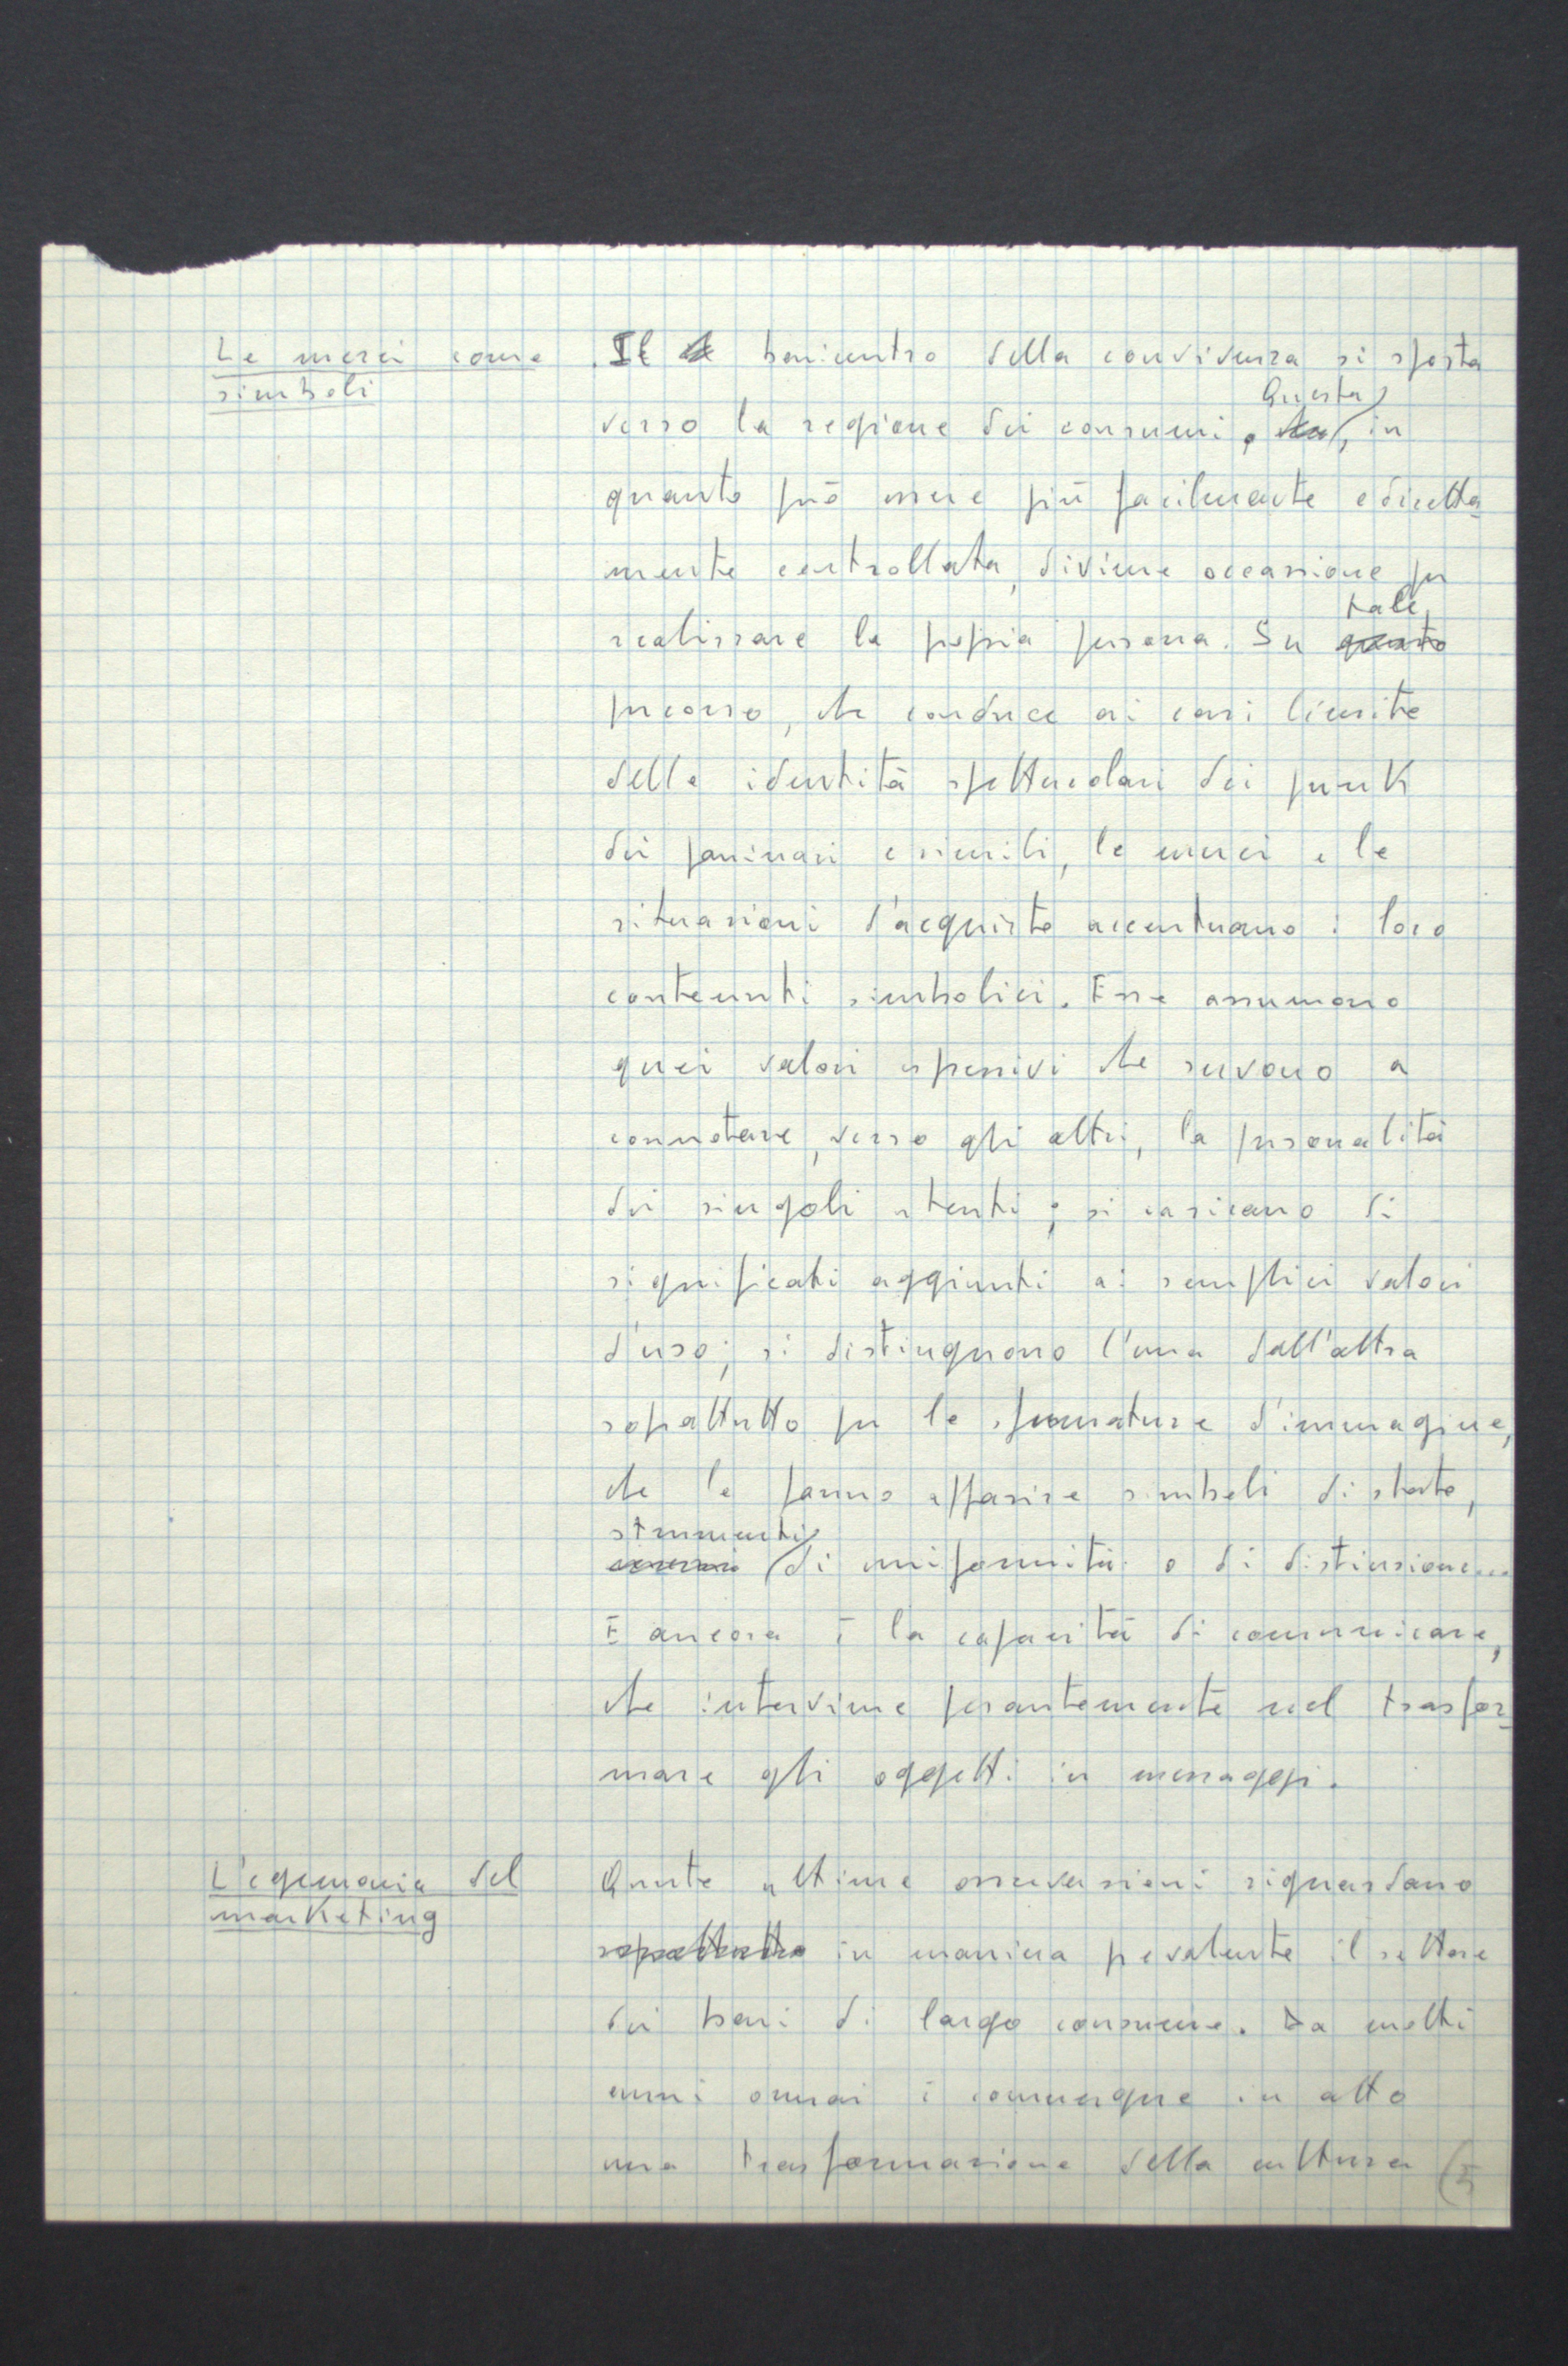 Le merci come
simboli
. Il baricentro della convivenza si sposta
Questa
verso la regione dei consumi. , in
quanto può essere più facilmente e diretta-
mente controllata, diviene occasione per
tale
realizzare la propria persona. Su questo
percorso, che conduce ai casi limite
delle identità spettacolari dei punk
dei paninari e simili, le merci e le
situazioni d'acquisto accentuano i loro
contenuti simbolici. Esse assumono
quei valori espressivi che servono a
connotare, verso gli altri, la personalità
dei singoli utenti; si caricano di
significati aggiunti ai semplici valori
d'uso; si distinguono l'una dall'altra
soprattutto per le sfumature d'immagine,
che le fanno apparire simboli di stato,
strumenti
di uniformità o di distinzione...
E ancora è la capacità di comunicare,
che interviene pesantemente nel trasfor-
mare gli oggetti in messaggi.
L'egemonia del
marketing
Queste ultime osservazioni riguardano
soprattutto in maniera prevalente il settore
dei beni di largo consumo. Da molti
anni ormai è comunque in atto
una trasformazione della cultura (5